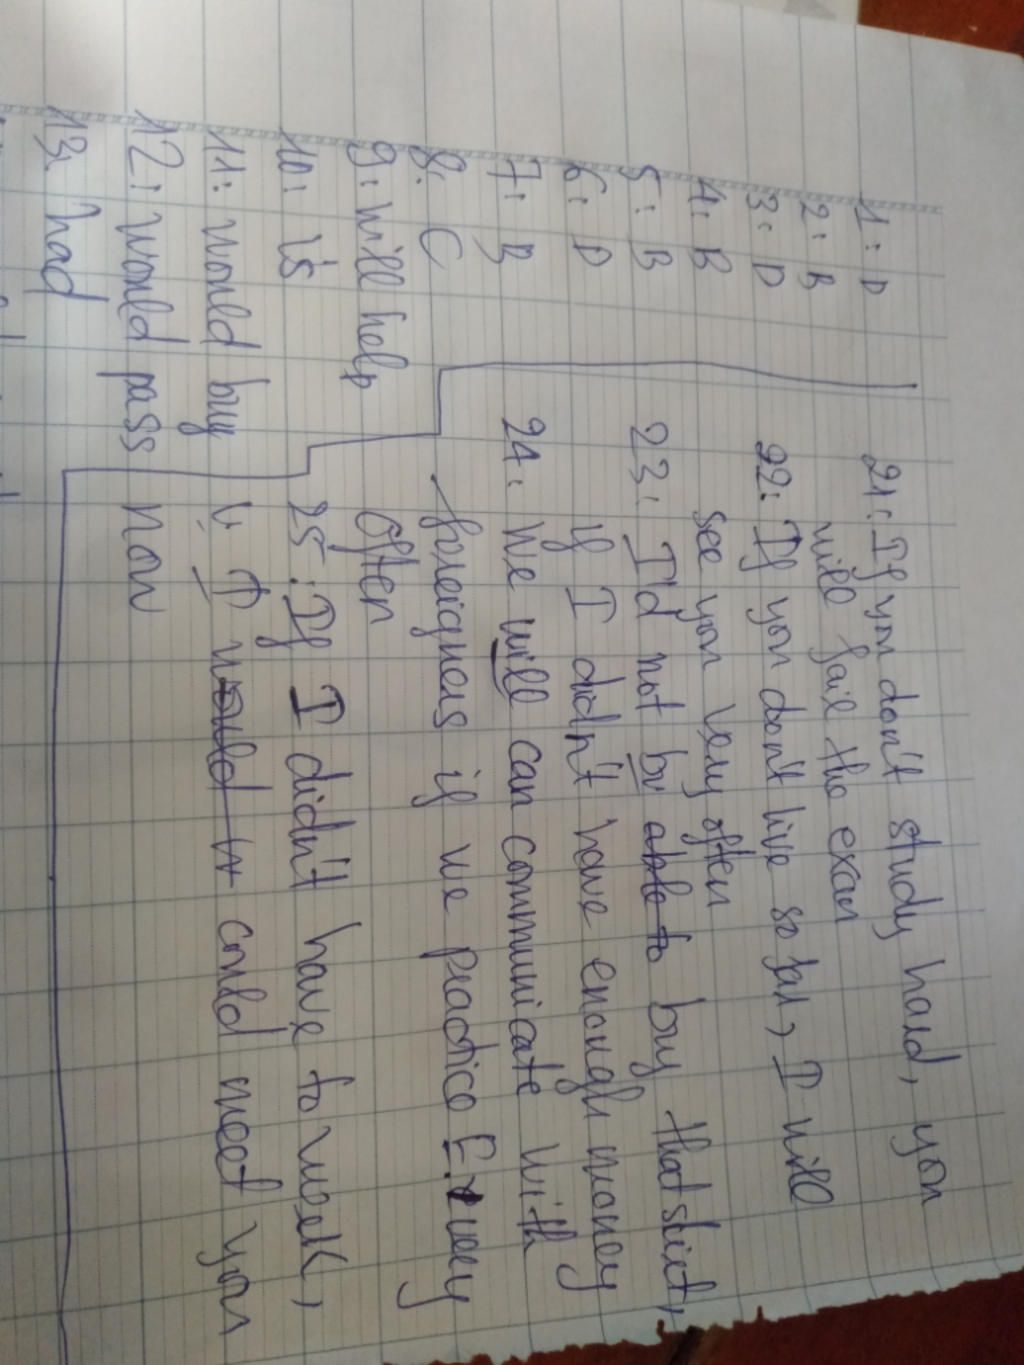 1: D
2: B
3: D
4: B
5: B
6: D
7: B
8: C
9: will help
10: is
11: would buy
12: would pass
13: had
21: If you don't study hard, you
will fail the exam
22: If you don't live so far, I will
see you very often
23: I'd not buy able to buy that shirt,
if I didn't have enough money
24: We will can communicate with
foreigners if we practice very
often
25: If I didn't have to work,
I would could meet you
now